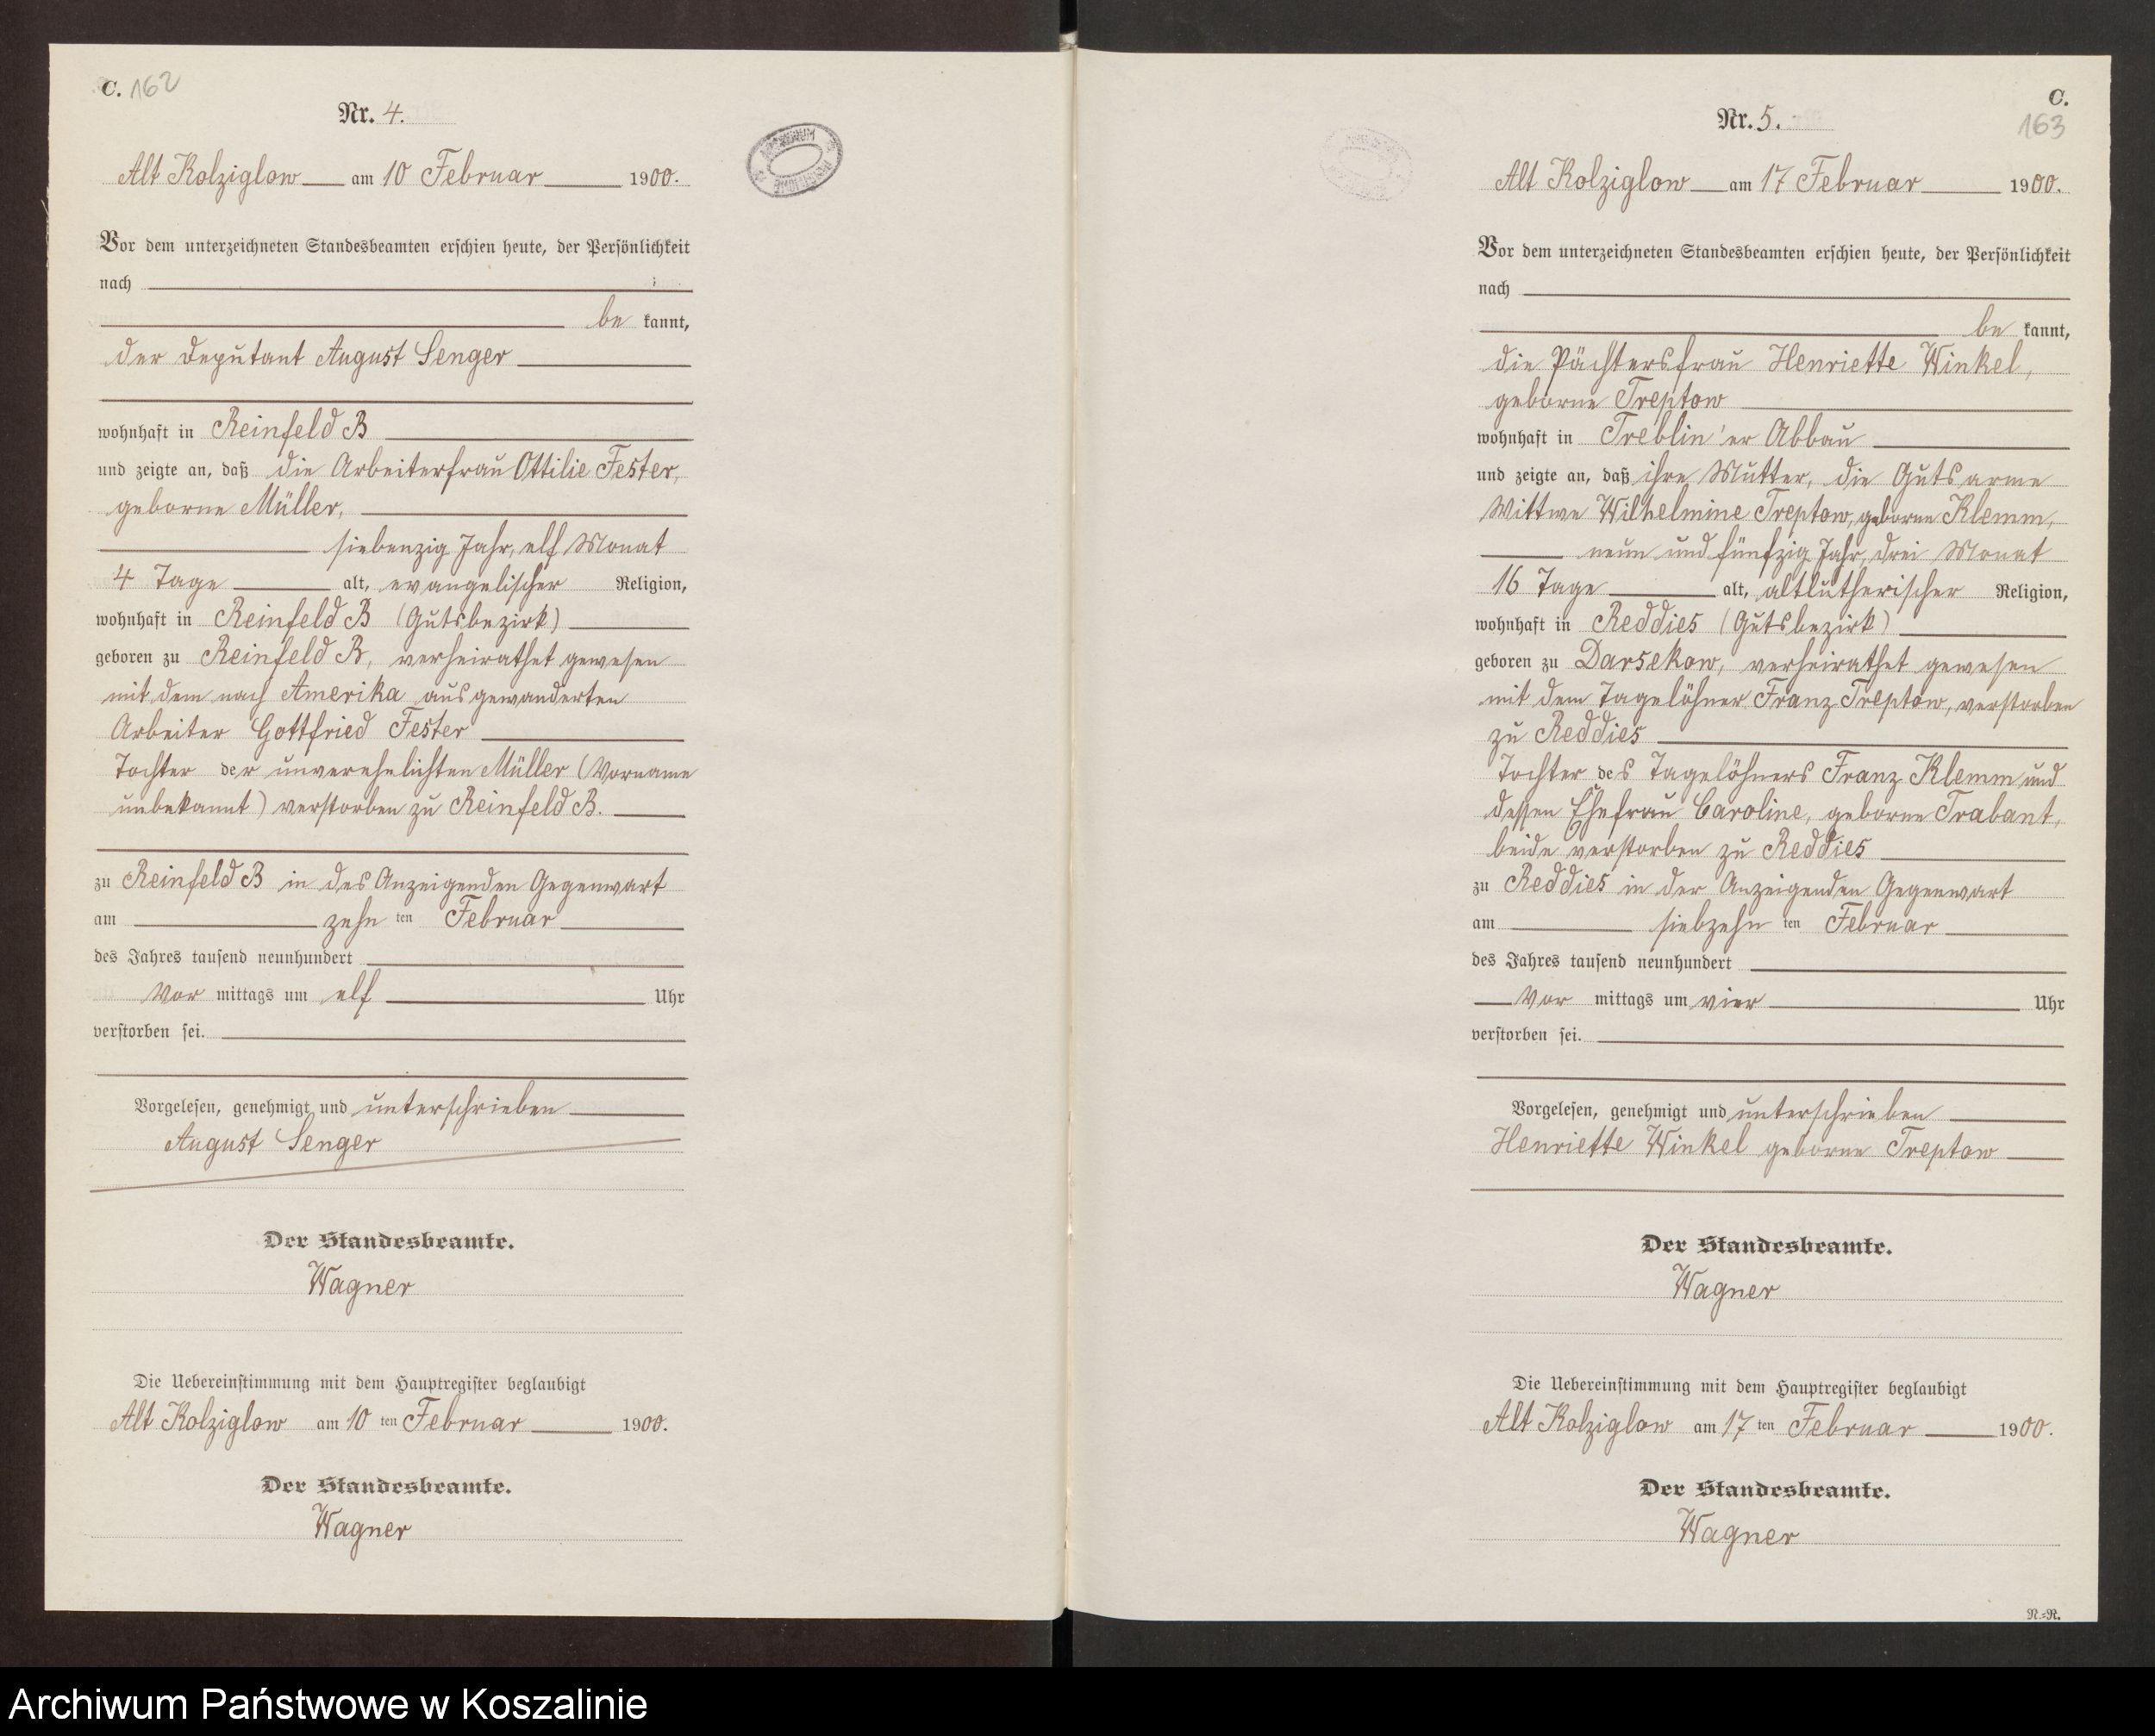 C. 162
Nr. 4.
Alt Kolziglow am 10 Februar 1900.
Vor dem unterzeichneten Standesbeamten erschien heute, der Persönlichkeit
nach
be kannt,
der Deputant August Senger
wohnhaft in Reinfeld B
und zeigte an, daß die Arbeiterfrau Ottilie Fester,
geborne Müller,
siebenzig Jahr, elf Monat
4 Tage alt, evangelischer Religion,
wohnhaft in Reinfeld B (Gutsbezirk)
geboren zu Reinfeld B, verheirathet gewesen
mit dem nach Amerika ausgewanderten
Arbeiter Gottfried Fester
Tochter der unverehelichten Müller (Vorname
unbekannt) verstorben zu Reinfeld B.
zu Reinfeld B in des Anzeigenden Gegenwart
am zehn ten Februar
des Jahres tausend neunhundert
Vor mittags um elf Uhr
verstorben sei.
Vorgelesen, genehmigt und unterschrieben
August Senger
Der Standesbeamte.
Wagner
Die Uebereinstimmung mit dem Hauptregister beglaubigt
Alt Kolziglow am 10 ten Februar 1900.
Der Standesbeamte.
Wagner
C.
163
Nr. 5.
Alt Kolziglow am 17 Februar 1900.
Vor dem unterzeichneten Standesbeamten erschien heute, der Persönlichkeit
nach
be kannt,
die Pächtersfrau Henriette Winkel,
geborne Treptow
wohnhaft in Treblin'er Abbau
und zeigte an, daß ihre Mutter, die Gutsarme
Wittwe Wilhelmine Treptow, geborne Klemm,
neun und fünfzig Jahr, drei Monat
16 Tage alt, altlutherischer Religion,
wohnhaft in Reddies (Gutsbezirk)
geboren zu Darsekow, verheirathet gewesen
mit dem Tagelöhner Franz Treptow, verstorben
zu Reddies
Tochter des Tagelöhners Franz Klemm und
dessen Ehefrau Caroline, geborne Trabant,
beide verstorben zu Reddies
zu Reddies in der Anzeigenden Gegenwart
am siebzehn ten Februar
des Jahres tausend neunhundert
Vor mittags um vier Uhr
verstorben sei.
Vorgelesen, genehmigt und unterschrieben
Henriette Winkel geborne Treptow
Der Standesbeamte.
Wagner
Die Uebereinstimmung mit dem Hauptregister beglaubigt
Alt Kolziglow am 17 ten Februar 1900.
Der Standesbeamte.
Wagner
N.=R.
Archiwum Państwowe w Koszalinie